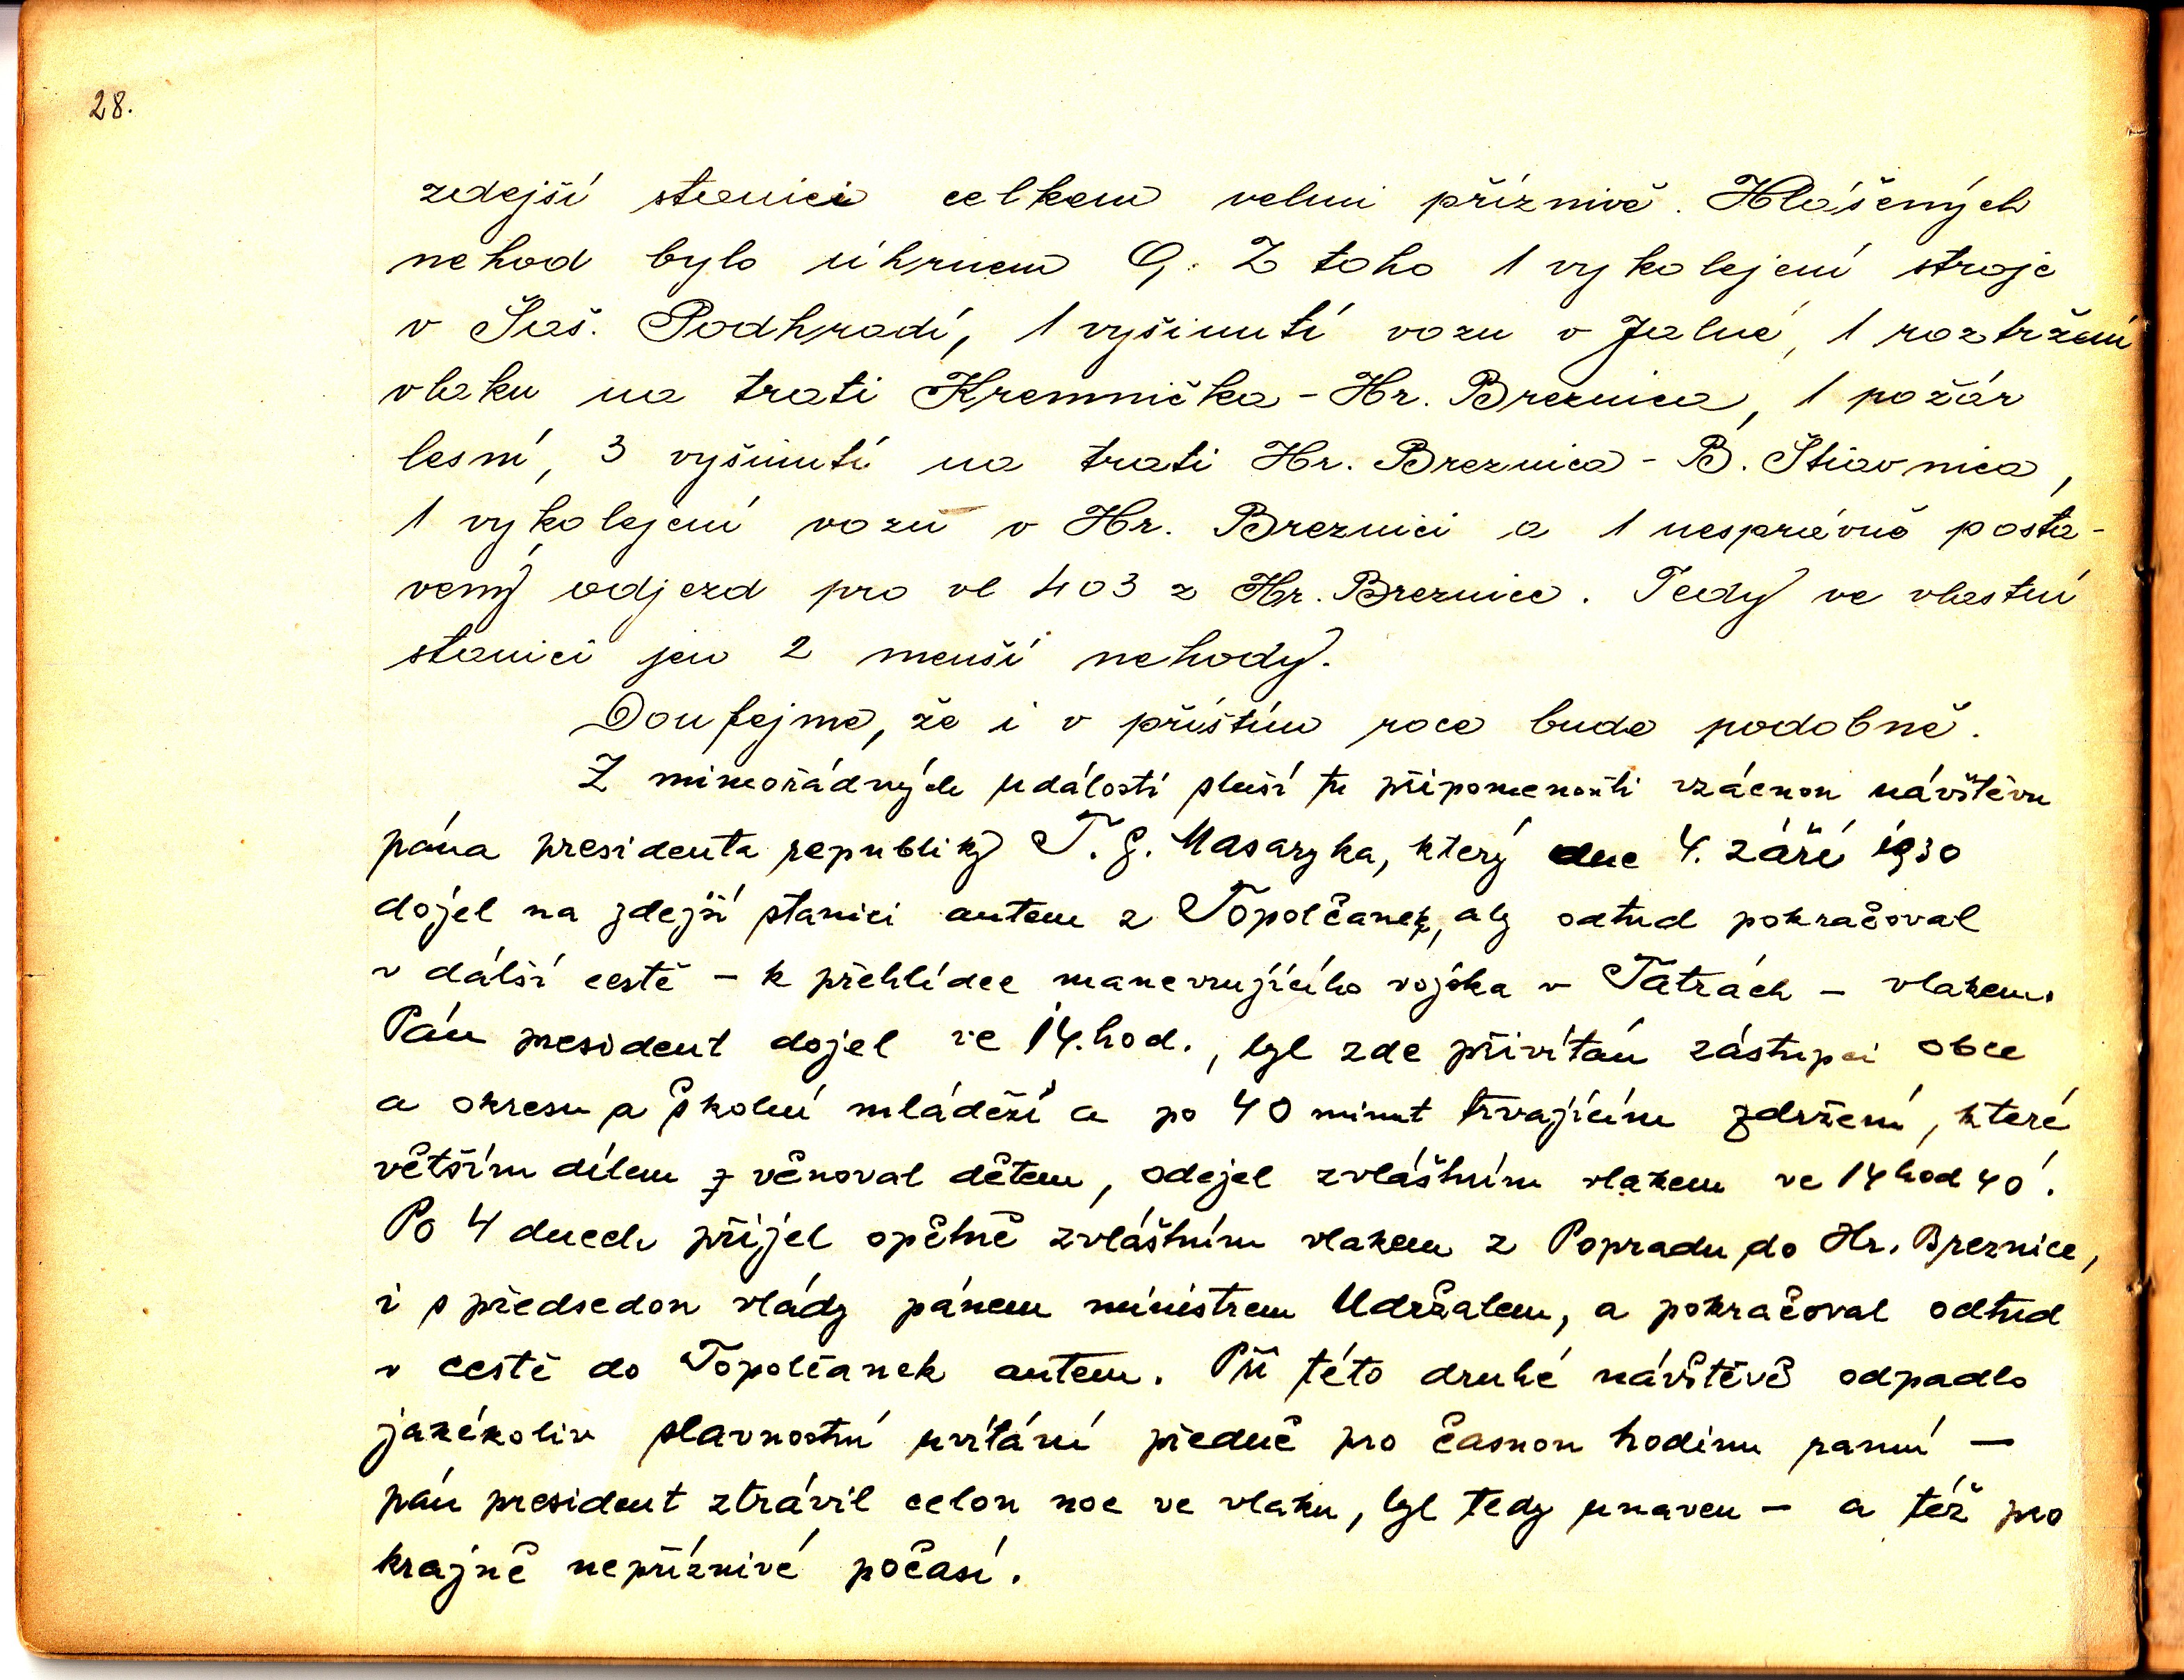 28.
zdejší stanici celkem velmi příznivě. Hlášených
nehod bylo úhrnem 9. Z toho 1 vykolejení stroje
v Šaš. Podhradí, 1 vyšinutí vozu v Jalné, 1 roztržení
vlaku na trati Kremnička - Hr. Breznica, 1 požár
lesní, 3 vyšinutí na trati Hr. Breznica - B. Štiavnica,
1 vykolejení vozů v Hr. Breznici a 1 nesprávně posta-
vený odjezd pro vl 403 z Hr. Breznice. Tedy ve vlastní
stanici jen 2 menší nehody.
Doufejme, že i v příštím roce bude podobně.
Z mimořádných událostí sluší tu připomenouti vzácnou návštěvu
pána presidenta republiky T. G. Masaryka, který dne 4. září 1930
dojel na zdejší stanici autem z Topolčanek, aby odtud pokračoval
v další cestě - k přehlídce manevrujícího vojska v Tatrách - vlakem.
Pán president dojel ve 14. hod., byl zde přivítán zástupci obce
a okresu a školní mládeží a po 40 minut trvajícím zdržení, které
větším dílem věnoval dětem, odejel zvláštním vlakem ve 14 hod 40'.
Po 4 dnech přijel opětně zvláštním vlakem z Popradu do Hr. Breznice,
i s předsedou vlády pánem ministrem Udržalem, a pokračoval odtud
v cestě do Topolčanek autem. Při této druhé návštěvě odpadlo
jakékoliv slavnostní uvítání předně pro časnou hodinu ranní -
pán president ztrávil celou noc ve vlaku, byl tedy unaven - a též pro
krajně nepříznivé počasí.